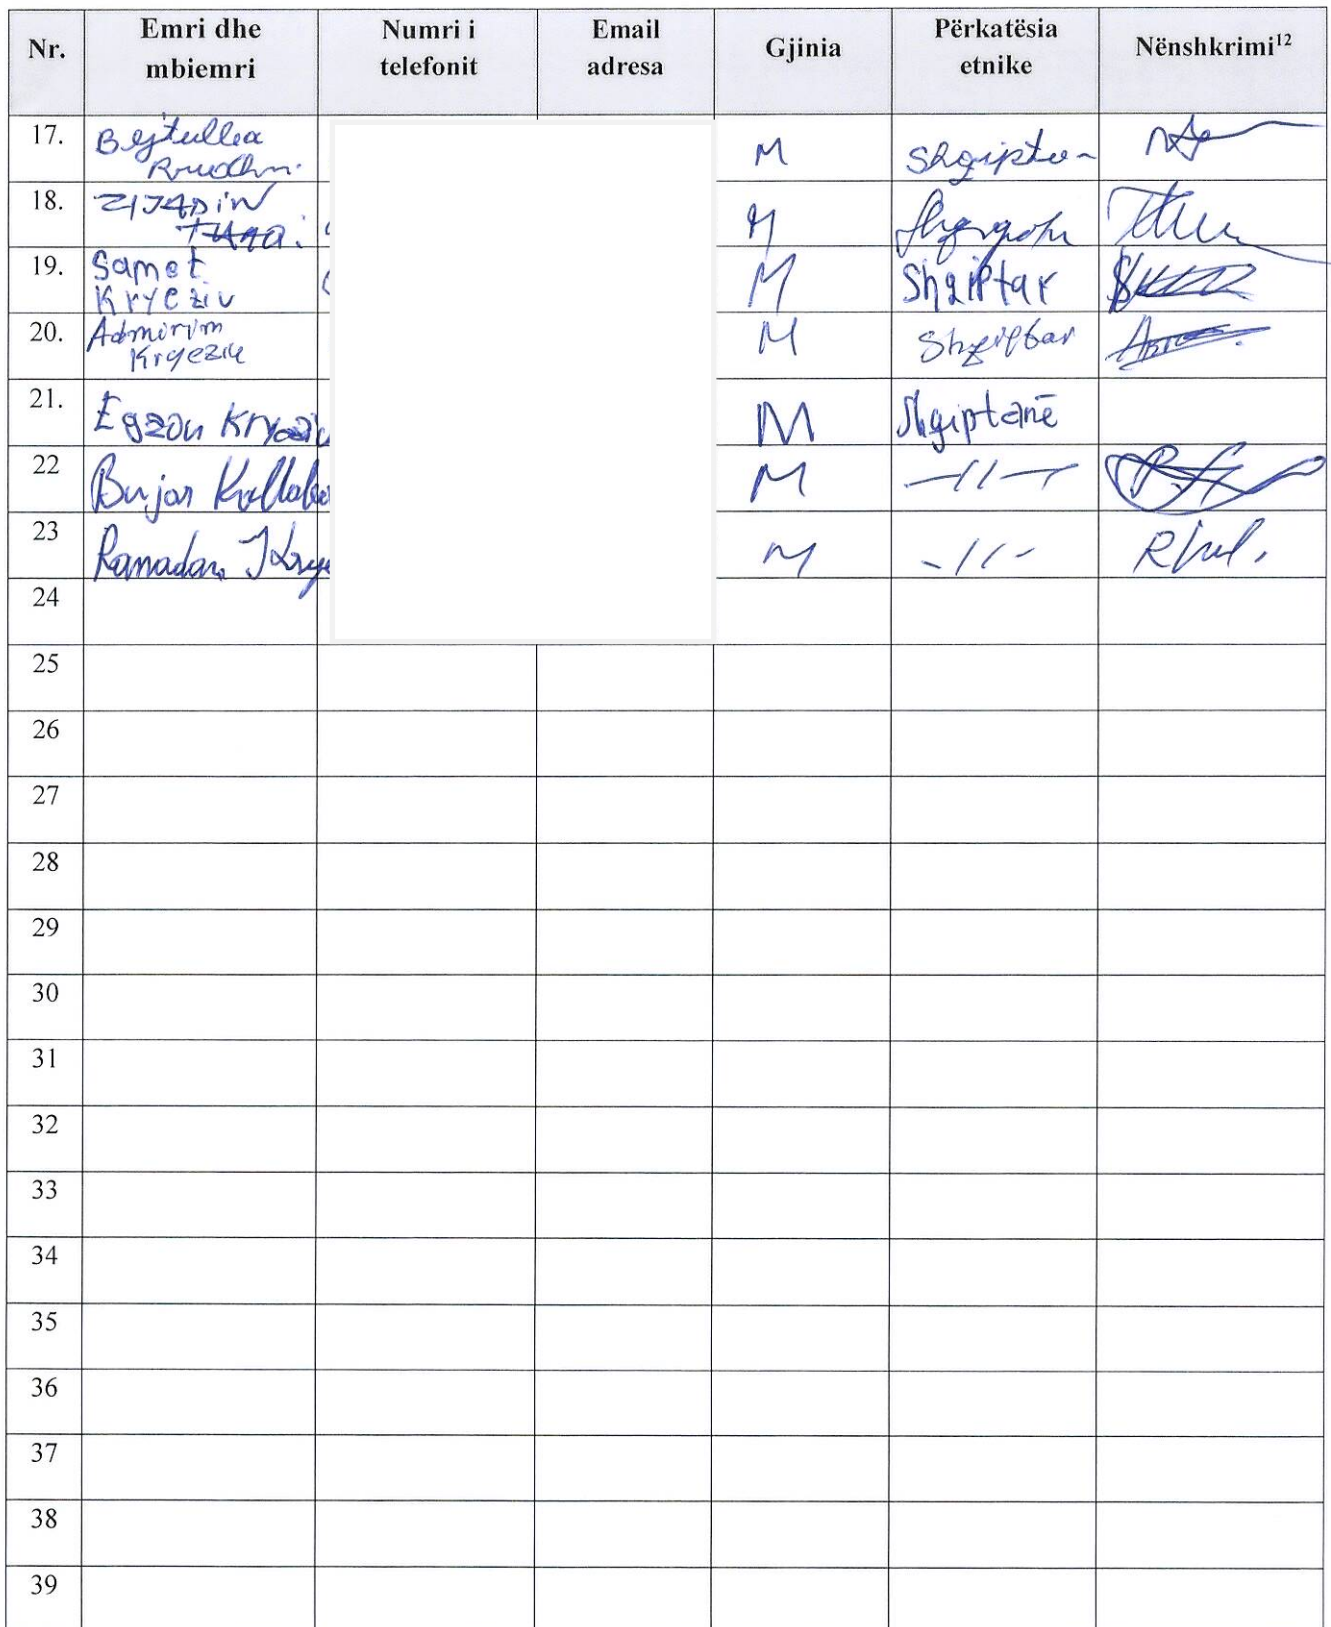 Nr. Emri dhe mbiemri Numri i telefonit Email adresa Gjinia Përkatësia etnike Nënshkrimi¹²
17. Bejtullah M
18. ZIJADIN M
19. Samet Kryeziu M Shqiptar
20. Admirim Kryeziu M Shqiptar
21. Egzon M Shqiptarë
22 Bujar M -//-
23 Ramadan M -//-
24
25
26
27
28
29
30
31
32
33
34
35
36
37
38
39